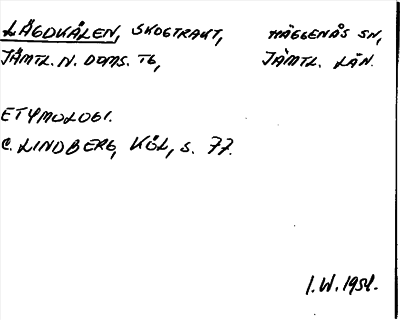 LÄGDKÅLEN, SKOGTRAKT, HÄGGENÅS SN,
JÄMTL. N. DOMS. TG, JÄMTL. LÄN.
ETYMOLOGI.
C. LINDBERG, KÖL, S. 77.
I.W. 1954.